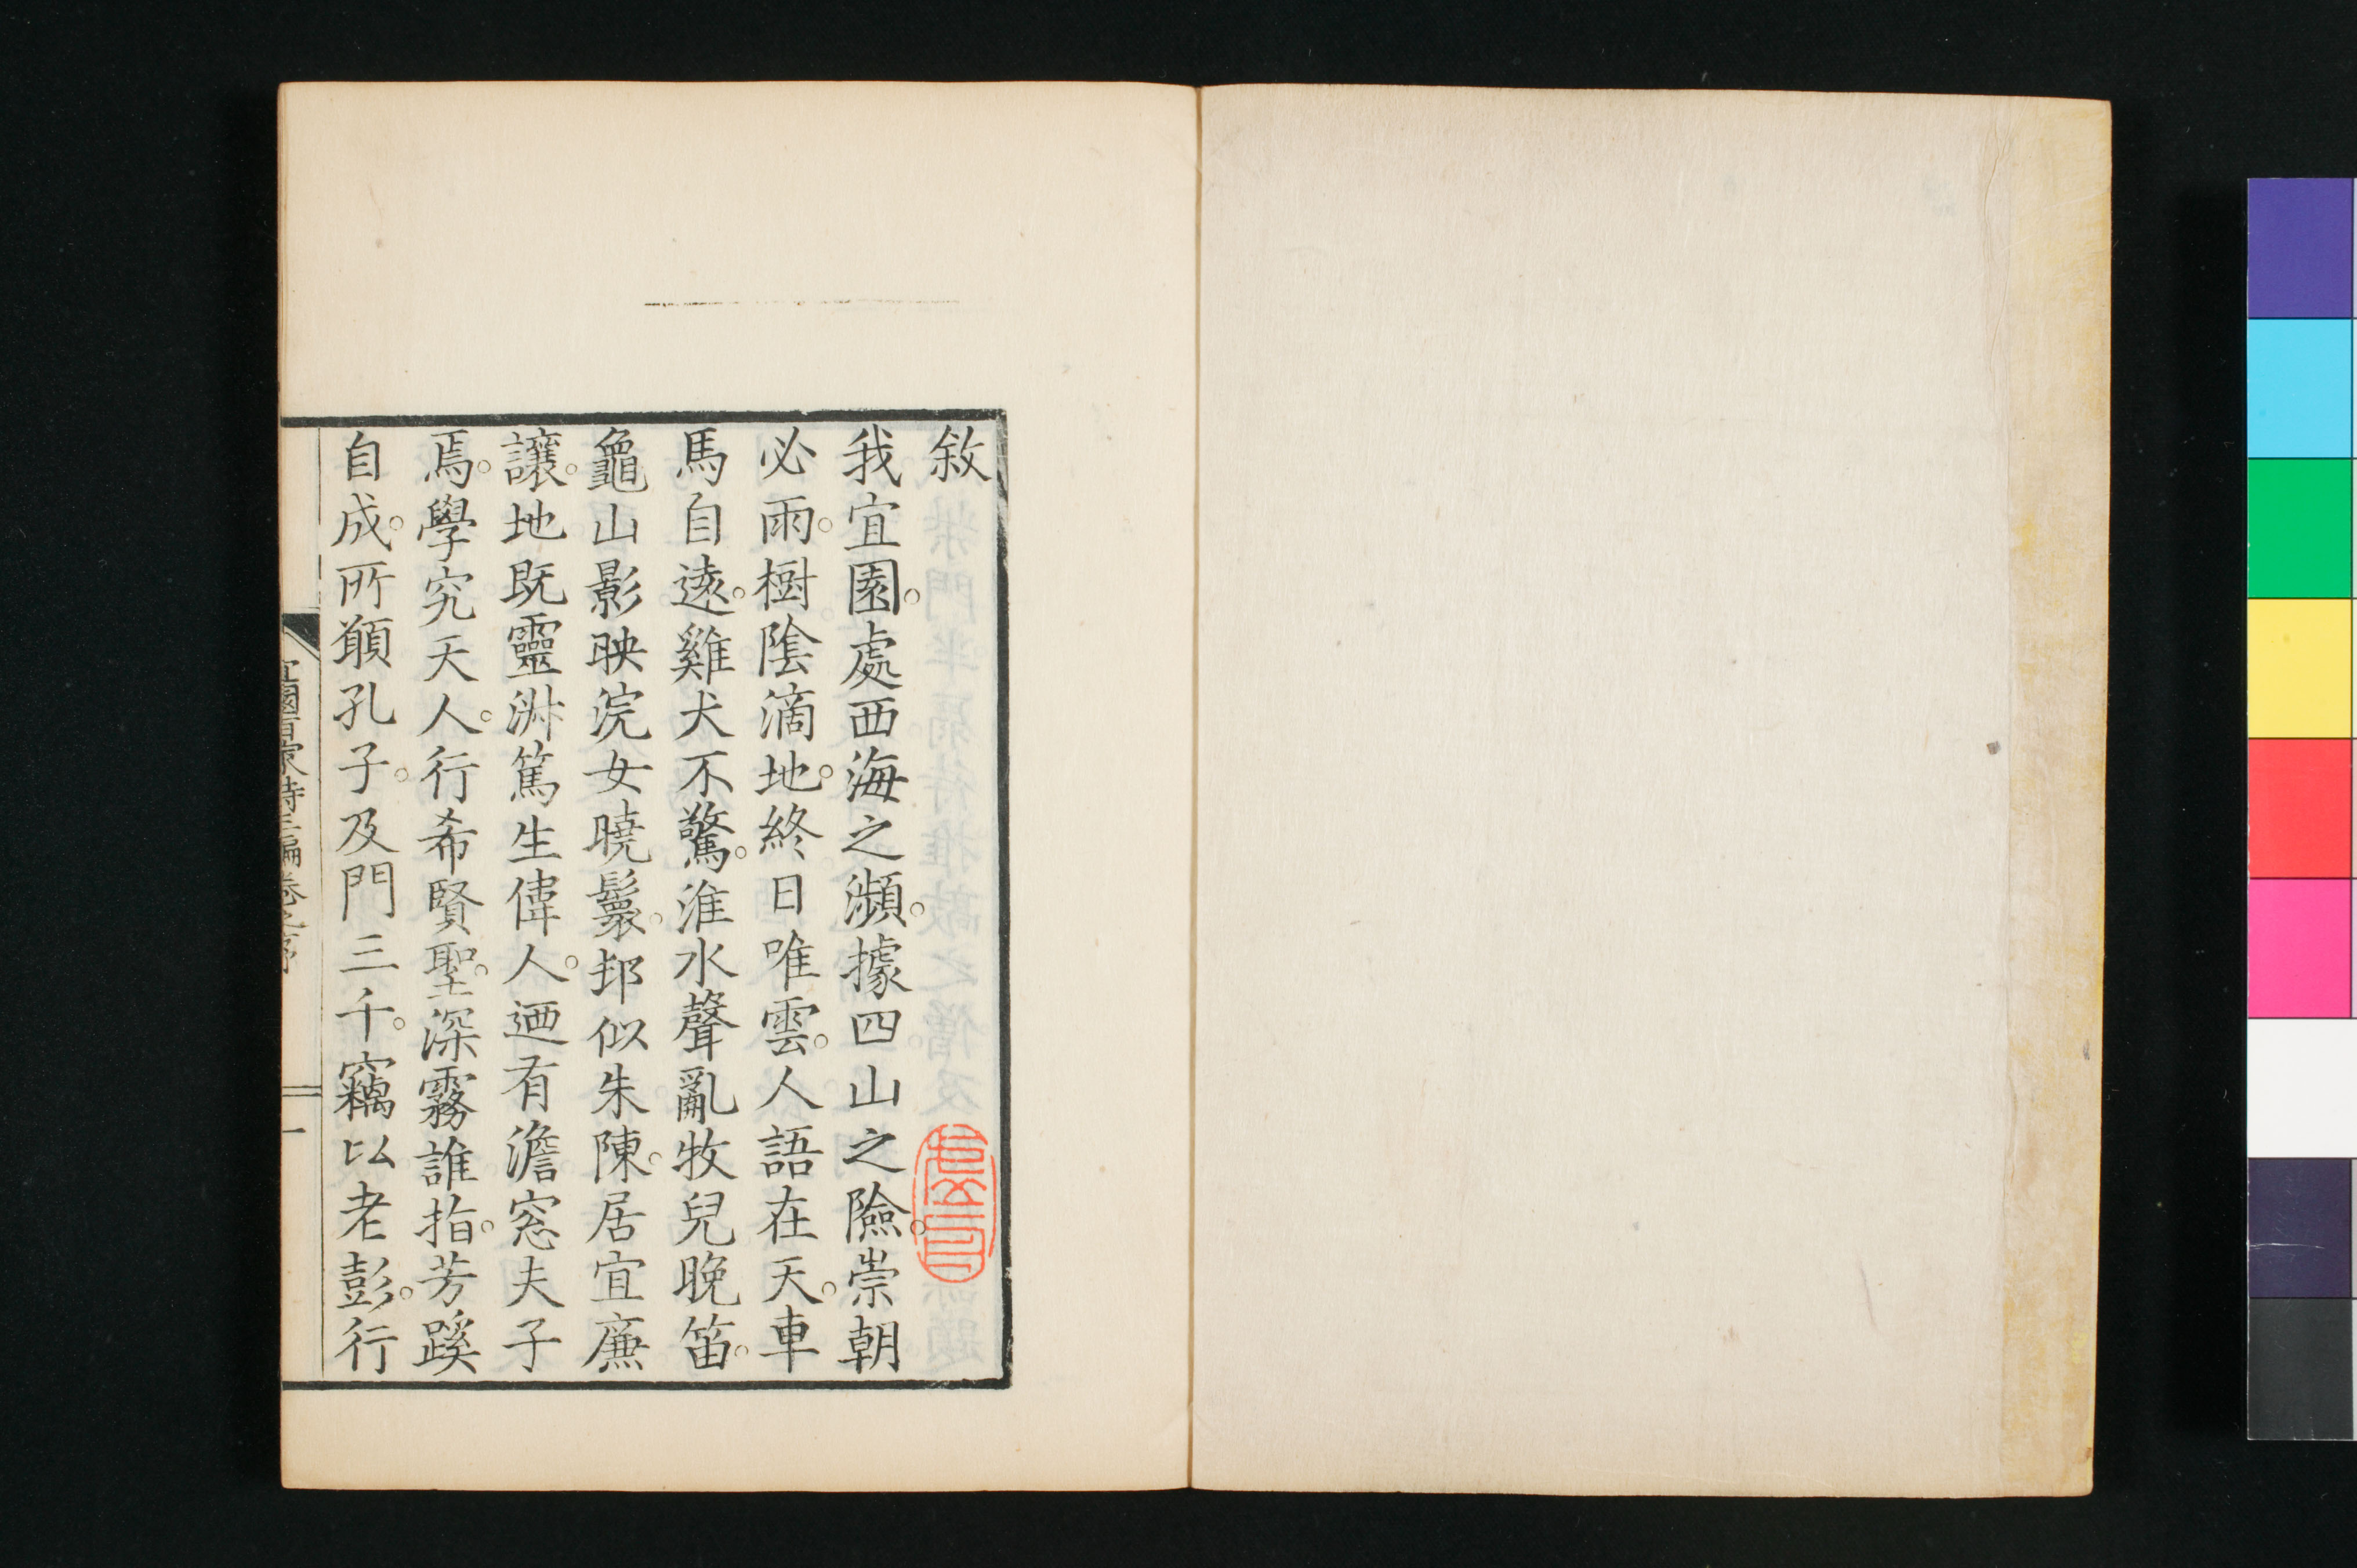 敘
我宜園。處西海之瀕。據四山之險。崇朝
必雨。樹陰滴地。終日唯雲。人語在天。車
馬自遠。雞犬不驚。淮水聲亂牧兒晚笛。
龜山影映浣女曉鬟。邨似朱陳。居宜廉
讓。地既靈淑篤生偉人。迺有澹窓夫子
焉。學究天人。行希賢聖。深霧誰指。芳蹊
自成。所願孔子。及門三千。竊以老彭。行
宜園百家詩三編卷之序
一